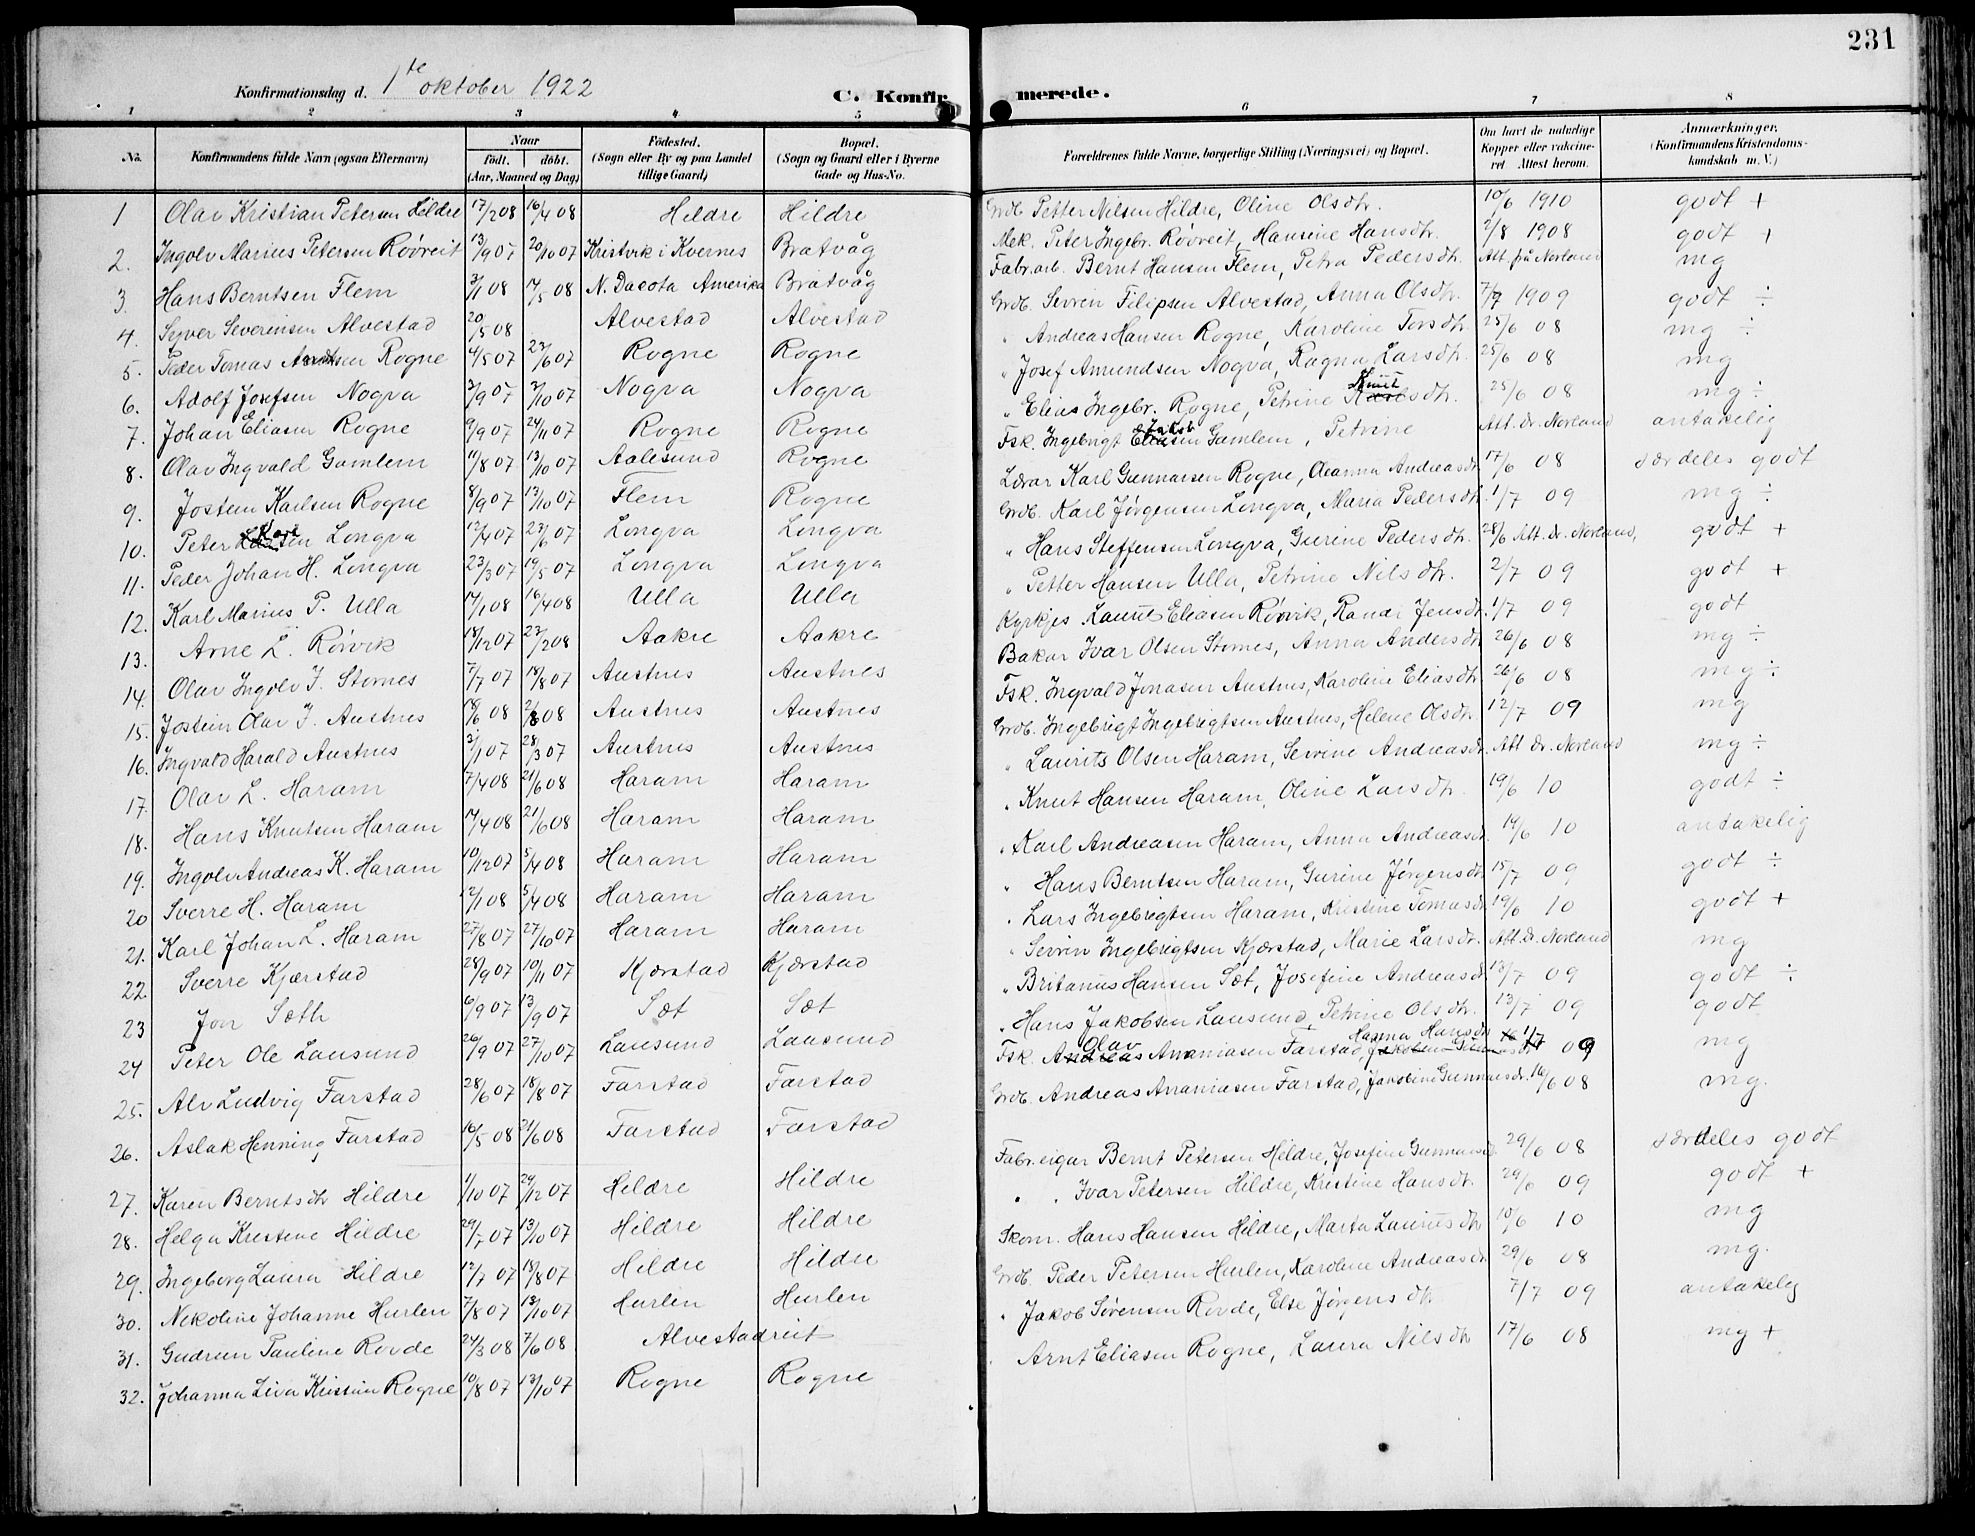 231
Konfirmationsdag d. 1te oktober 1922 C. Konfirmerede.
1 2 3 4 5 6 7 8
No. Konfirmandens fulde Navn (ogsaa Efternavn) Naar født. døbt. (Aar, Maaned og Dag) Fødested. (Sogn eller By og paa Landet tillige Gaard) Bopæl. (Sogn og Gaard eller i Byerne Gade og Hus-No. Forældrenes fulde Navne, borgerlige Stilling (Næringsvei) og Bopæl. Om havt de naturlige Kopper eller vakcineret. Attest herom. Anmærkninger. (Konfirmandens Kristendomskundskab m. V.)
1 Olav Kristian Petersen Hildre 17/2 08 16/4 08 Hildre Hildre Grdb. Petter Nilsen Hildre, Oline Olsdtr. 10/6 1910 godt +
2. Ingolv Marius Petersen Røvreit 13/9 07 20/10 07 Kristvik i Kvernes Bratvåg Mek. Peter Ingebr. Røvreit, Hansine Hansdtr. /8 1908 godt +
3. Hans Berntsen Flem 3/1 08 17/5 08 N. Dacota Amerika Bratvåg Fabr.arb. Bernt Hansen Flem, Petra Pedersdtr. Att. frå Norland mg
4. Syver Severinsen Alvestad 20/5 08 Alvestad Alvestad Grdb. Sevrin Filipsen Alvestad, Anna Olsdtr. 7/7 1909 godt ÷
5. Peder Tomas Rogne 4/5 07 23/6 07 Rogne Rogne " Andreas Hansen Rogne, Karoline Torsdtr. 25/6 08 mg ÷
6. Adolf Josefsen Nogva 3/9 07 3/10 07 Nogva Nogva " Josef Amundsen Nogva, Ragna Larsdtr. 25/6 08 mg
7. Johan Eliasen Rogne 9/9 07 24/11 07 Rogne Rogne " Elias Ingebr. Rogne, Petrine Knutsdtr. 25/6 08 mg ÷
8. Olav Ingvald Gamlem 11/8 07 13/10 07 Aalesund Rogne Fsk. Ingebrigt Jakob Gamlem, Petrine Att. dr. Norland antakelig
9. Jostein Karlsen Rogne 8/9 07 13/10 07 Flem Rogne Lærar Karl Gunnarsen Rogne, Andreasdtr. 17/6 08 særdeles godt
10. Peter Longva 12/4 07 23/6 07 Longva Longva Grdb. Karl Jørgensen Longva, Maria Pedersdtr. 1/7 09 mg ÷
11. Peder Johan H. Longva 23/3 07 19/5 07 Longva Longva " Hans Steffensen Longva, Gurine Pedersdtr. 28/6 Att. dr. Norland, godt +
12. Karl Marius P. Ulla 14/1 08 16/4 08 Ulla Ulla " Petter Hansen Ulla, Petrine Nilsdtr. 2/7 09 godt +
13. Arne L. Rørvik 18/12 07 23/2 08 Aakre Aakre Kyrkjes. Eliasen Rørvik, Randi Jensdtr. 1/7 09 godt
14. Olav Ingolv I. Stornes 7/7 07 18/8 07 Austnes Austnes Bakar Ivar Olsen Stornes, Anna Andersdtr. 26/6 08 mg ÷
15. Jostein Olav I. Austnes 18/6 08 2/8 08 Austnes Austnes Fsk. Ingvald Jonasen Austnes, Karoline Eliasdtr. 26/6 08 mg ÷
16. Ingvald Harald Austnes 3/1 07 28/3 07 Austnes Austnes Grdb. Ingebrigt Ingebrigtsen Austnes, Helene Olsdtr. 12/7 09 mg
17. Olav L. Haram 7/4 08 21/6 08 Haram Haram " Laurits Olsen Haram, Sevrine Andreasdr. Att dr. Norland mg ÷
18. Hans Knutsen Haram 14/4 08 21/6 08 Haram Haram " Knut Hansen Haram, Oline Larsdtr. 19/6 10 godt ÷
19. Ingolv Andreas K. Haram 10/12 07 5/4 08 Haram Haram " Karl Andreasen Haram, Anna Andreasdr. 19/6 10 antakelig
20 Sverre H. Haram 12/1 08 5/4 08 Haram Haram " Hans Berntsen Haram, Gurine Jørgensdtr. 15/7 09 godt ÷
21. Karl Johan L. Haram 27/8 07 27/10 07 Haram Haram " Lars Ingebrigtsen Haram, Kristine Tomasdr. 19/6 10 godt +
22. Sverre Kjærstad 28/9 07 10/11 07 Kjærstad Kjærstad " Sevrin Ingebrigtsen Kjærstad, Marie Larsdtr. Att. dr. Norland mg
23 Jon Sæth 6/9 07 13/9 07 Sæt Sæt " Britanus Hansen Sæt, Josefine Andreasdr. 13/7 09 godt ÷
24 Peter Ole Lausund 26/9 07 27/10 07 Lausund Lausund " Hans Jakobsen Lausund, Petrine Olsdtr. 13/7 09 godt
25. Alv Ludvig Farstad 28/6 07 18/8 07 Farstad Farstad Fsk. Olav Ananiasen Farstad, Hanna Hansdtr. 1/7 09 mg
26. Aslak Henning Farstad 16/5 08 21/6 08 Farstad Farstad Grdb. Andreas Ananiasen Farstad, Jakobine Gunnarsdr. 16/6 08 mg.
27. Karen Berntsdtr Hildre 1/10 07 29/12 07 Hildre Hildre Fabr.eigar Bernt Petersen Hildre, Josefine Gunnarsdr. 29/6 08 særdeles godt
28. Helga Kristine Hildre 29/7 07 13/10 07 Hildre Hildre " " Ivar Petersen Hildre, Kristine Hansdtr. 29/6 09 godt +
29. Ingeborg Laura Hildre 12/7 07 18/8 07 Hildre Hildre Skom. Hans Hansen Hildre, Marta Laurusdtr. 10/6 10 mg
30. Nikoline Johanne Hurlen 7/8 07 13/10 07 Hurlen Hurlen Grdb. Peder Petersen Hurlen, Karoline Andreasdr. 29/6 08 mg.
31. Gudrun Pauline Rovde 24/3 08 7/6 08 Alvestadreit " Jakob Sørensen Rovde, Else Jørgensdtr. 7/7 09 antakelig
32. Johanna Liva Kristine Rogne 10/8 07 13/10 07 Rogne Rogne " Arnt Eliasen Rogne, Laura Nilsdtr 17/6 08 mg +